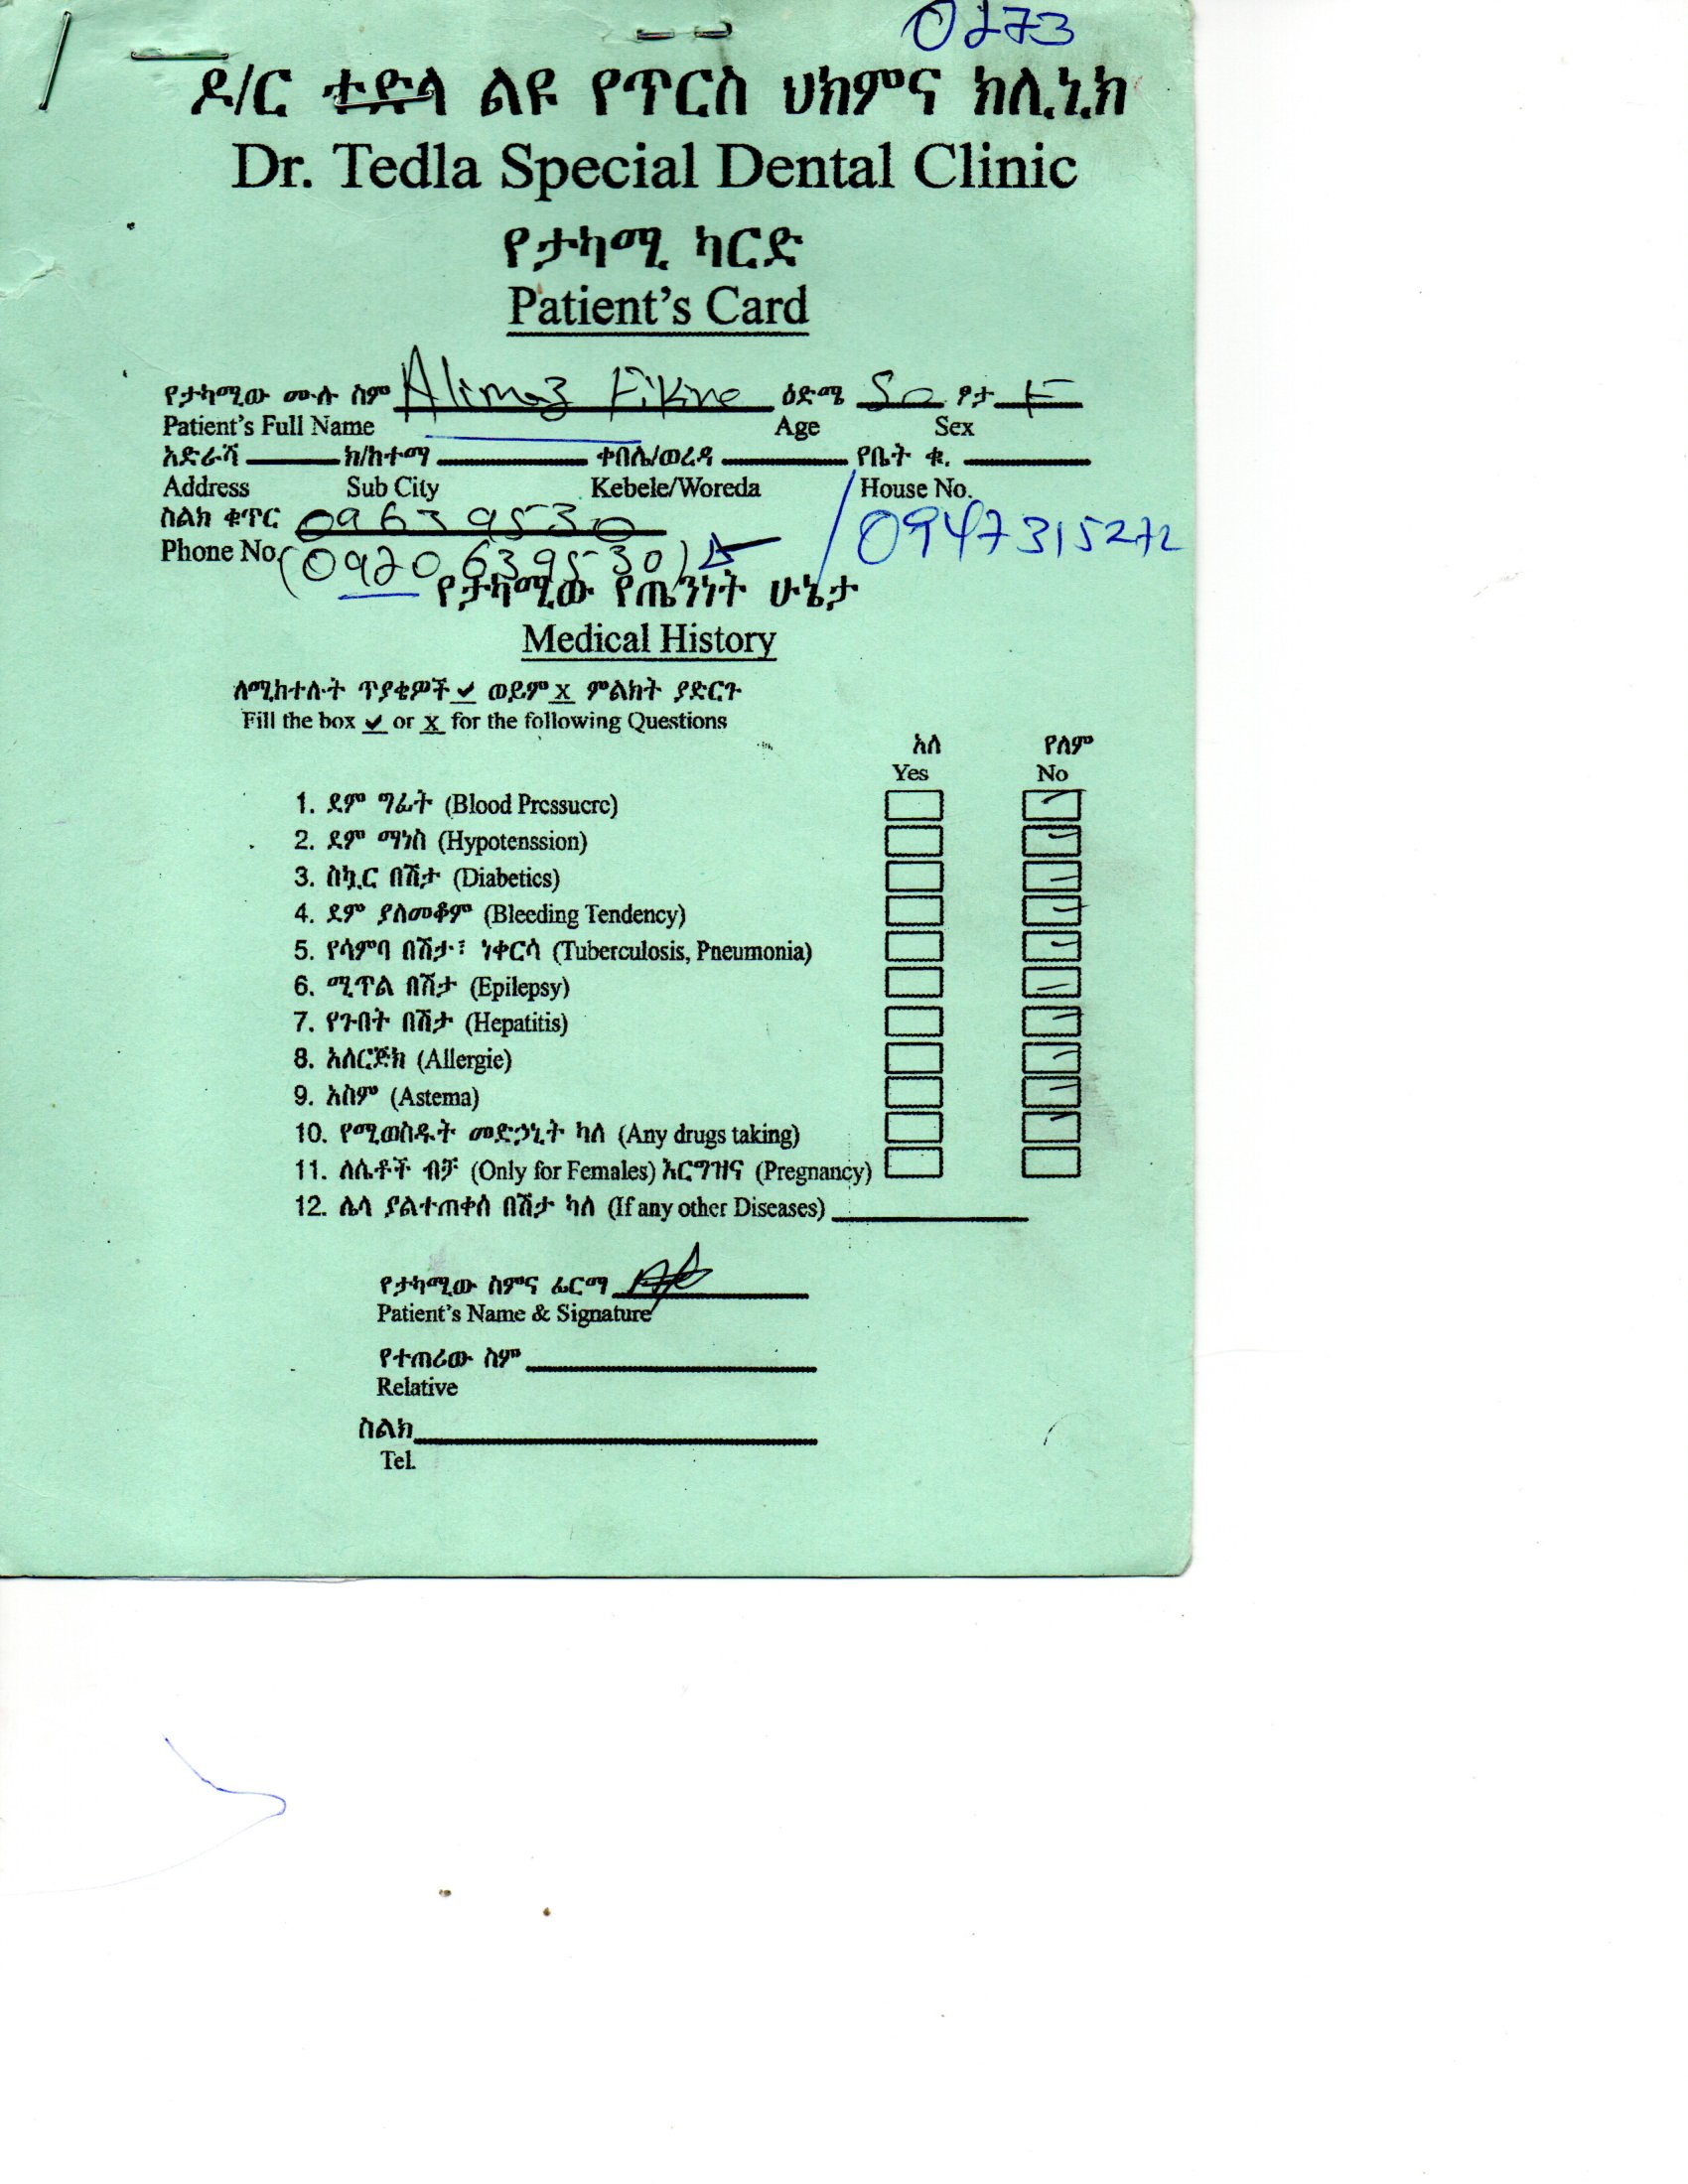 0273
ዶ/ር ተድላ ልዩ የጥርስ ህክምና ክሊኒክ
Dr. Tedla Special Dental Clinic
የታካሚ ካርድ
Patient's Card
የታካሚው ሙሉ ስም Alimaz Fikre ዕድሜ 50 ፆታ F
Patient's Full Name Age Sex
አድራሻ ክ/ከተማ ቀበሌ/ወረዳ የቤት ቁ.
Address Sub City Kebele/Woreda House No.
ስልክ ቁጥር 09639530
Phone No. (0920639530) / 0947315272
የታካሚው የጤንነት ሁኔታ
Medical History
ለሚከተሉት ጥያቄዎች ✔ ወይም x ምልክት ያድርጉ
Fill the box ✔ or x for the following Questions
አለ የለም
Yes No
1. ደም ግፊት (Blood Pressucre)
2. ደም ማነስ (Hypotenssion)
3. ስኳር በሽታ (Diabetics)
4. ደም ያለመቆም (Bleeding Tendency)
5. የሳምባ በሽታ፣ ነቀርሳ (Tuberculosis, Pneumonia)
6. ሚጥል በሽታ (Epilepsy)
7. የጉበት በሽታ (Hepatitis)
8. አለርጅክ (Allergie)
9. አስም (Astema)
10. የሚወስዱት መድኃኒት ካለ (Any drugs taking)
11. ለሴቶች ብቻ (Only for Females) እርግዝና (Pregnancy)
12. ሌላ ያልተጠቀሰ በሽታ ካለ (If any other Diseases)
የታካሚው ስምና ፊርማ
Patient's Name & Signature
የተጠሪው ስም
Relative
ስልክ
Tel.